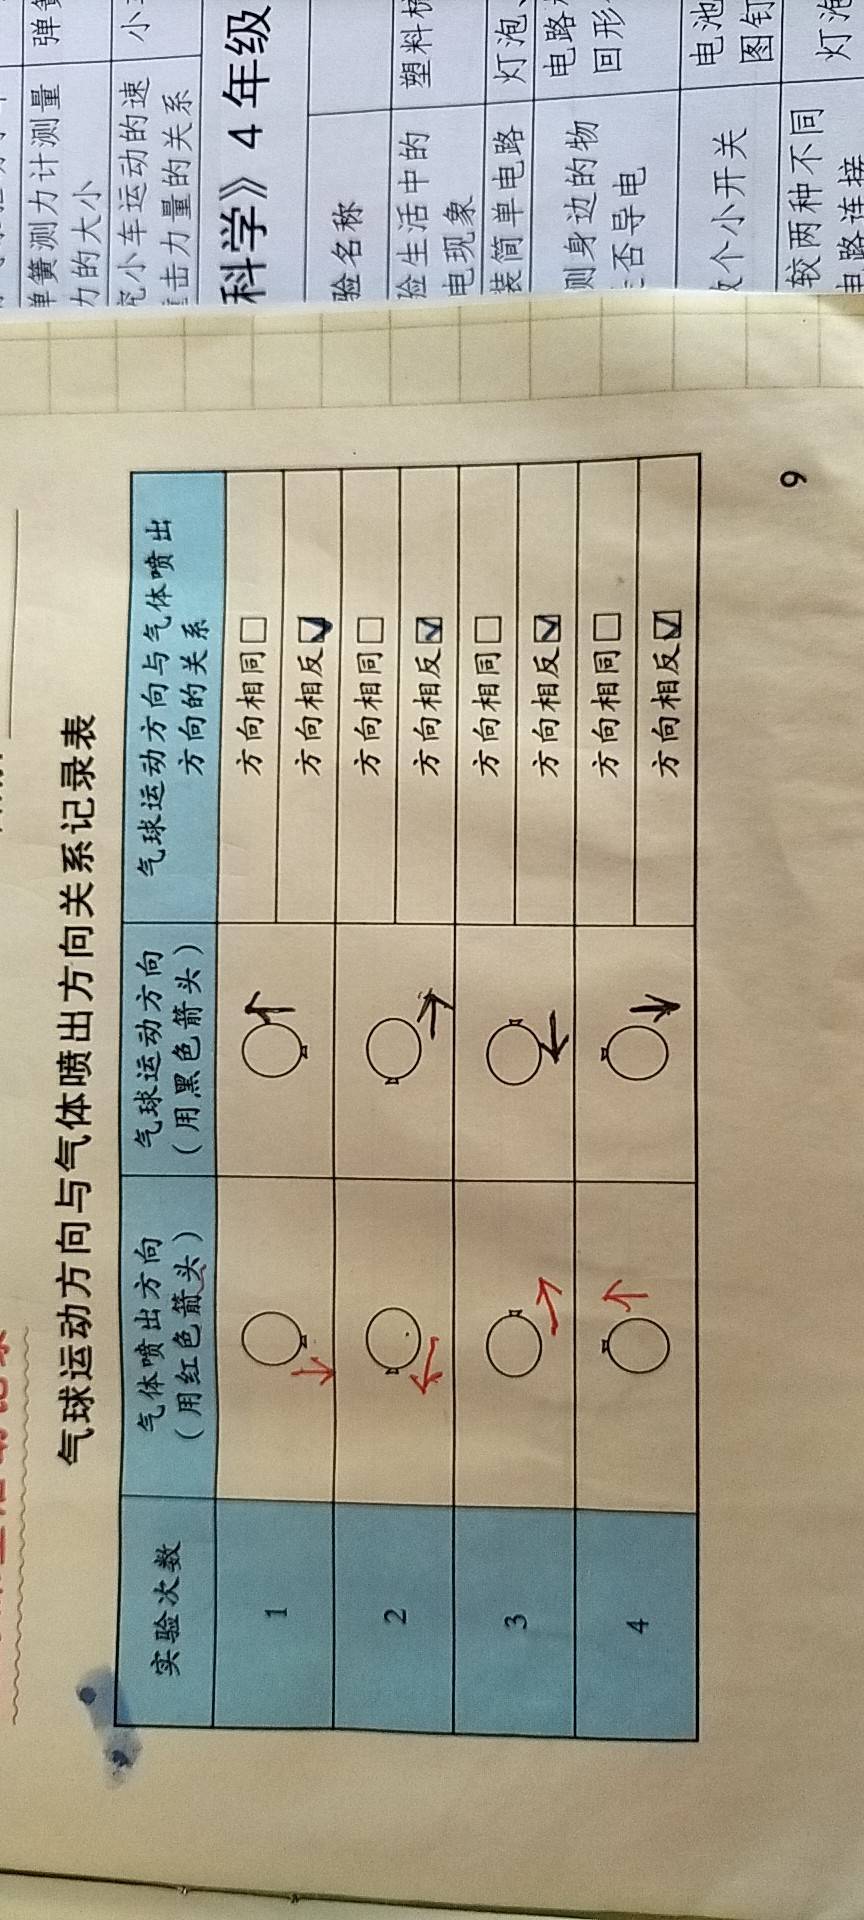 气球运动方向与气体喷出方向关系记录表
实验次数
气体喷出方向
（用红色箭头）
气球运动方向
（用黑色箭头）
气球运动方向与气体喷出
方向的关系
1
方向相同□
方向相反☑
2
方向相同□
方向相反☑
3
方向相同□
方向相反☑
4
方向相同□
方向相反☑
9
单簧测力计测量
力的大小
弹
究小车运动的速
小
击力量的关系
科学》4年级
验名称
验生活中的
电现象
塑料
装简单电路
灯泡、
则身边的物
否导电
电路
回形
个小开关
电池
图钉
较两种不同
电路连接
灯泡